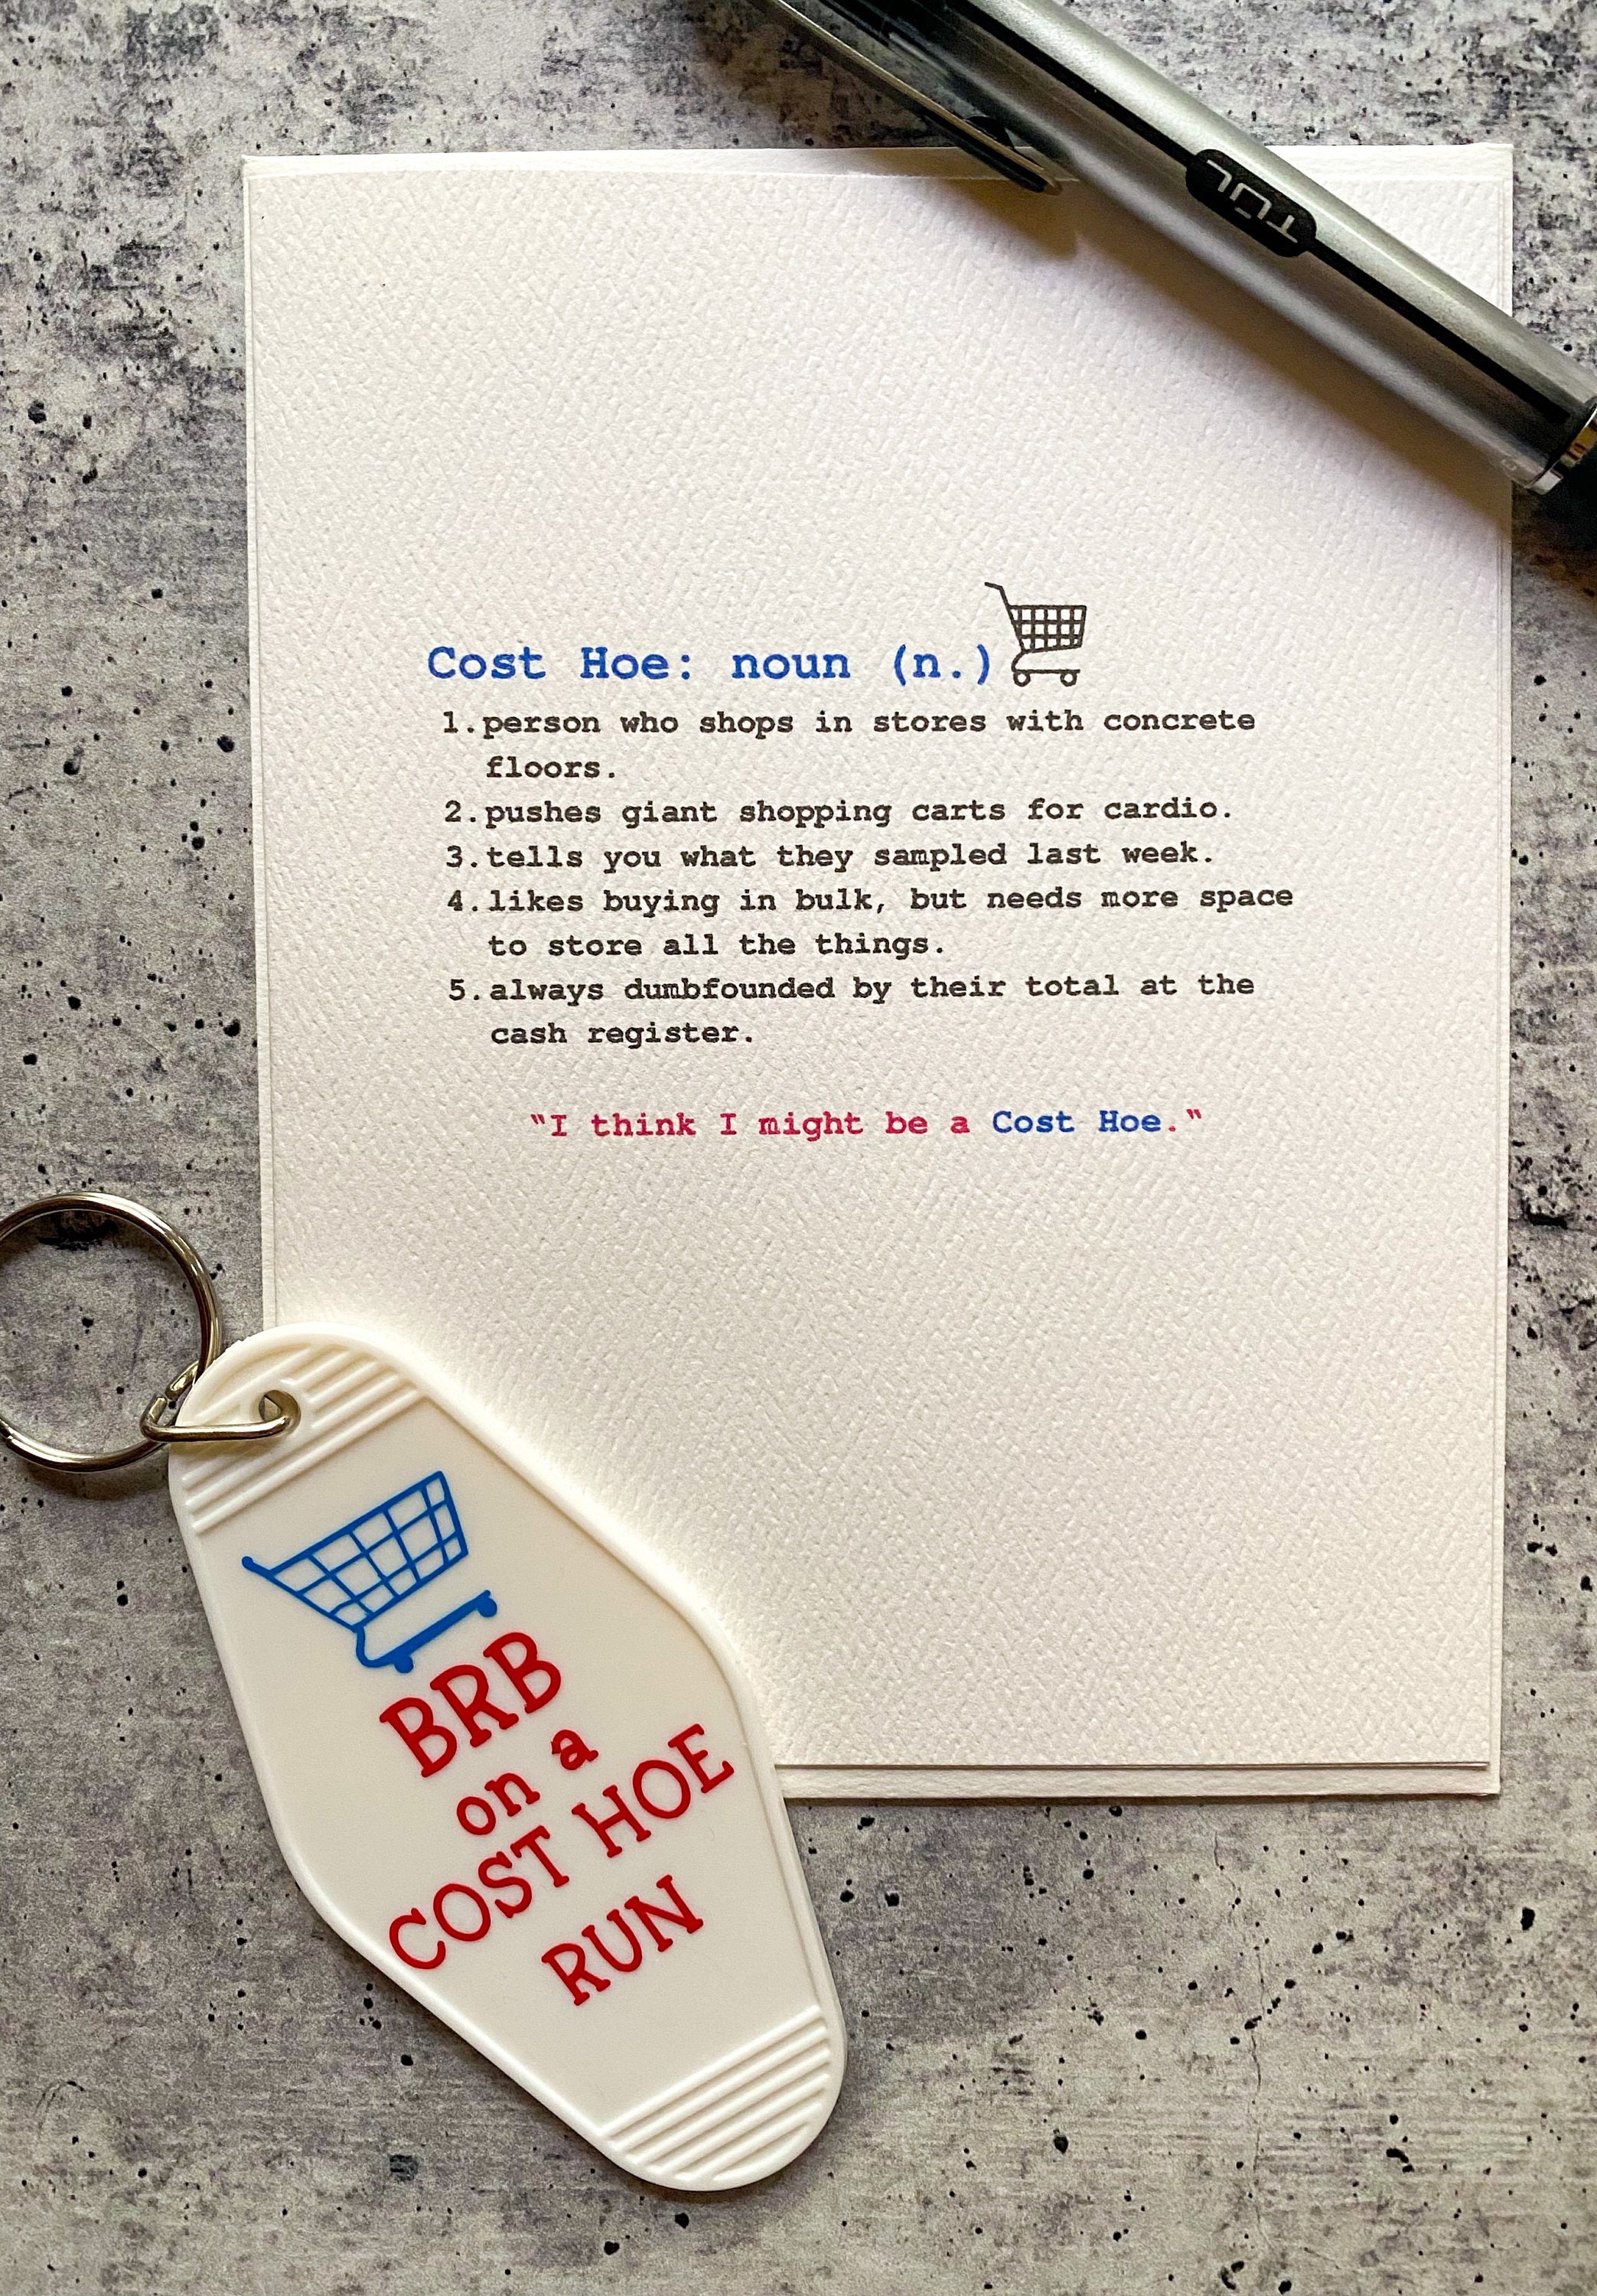 TUL
Cost Hoe: noun (n.)
1.person who shops in stores with concrete
floors.
2.pushes giant shopping carts for cardio.
3.tells you what they sampled last week.
4.likes buying in bulk, but needs more space
to store all the things.
5.always dumbfounded by their total at the
cash register.
"I think I might be a Cost Hoe."
BRB
on a
COST HOE
RUN